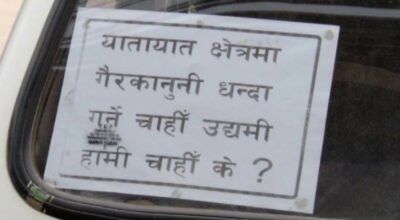 यातायात क्षेत्रमा
गैरकानुनी धन्दा
गर्ने चाहीँ उद्यमी
हामी चाहीँ के ?